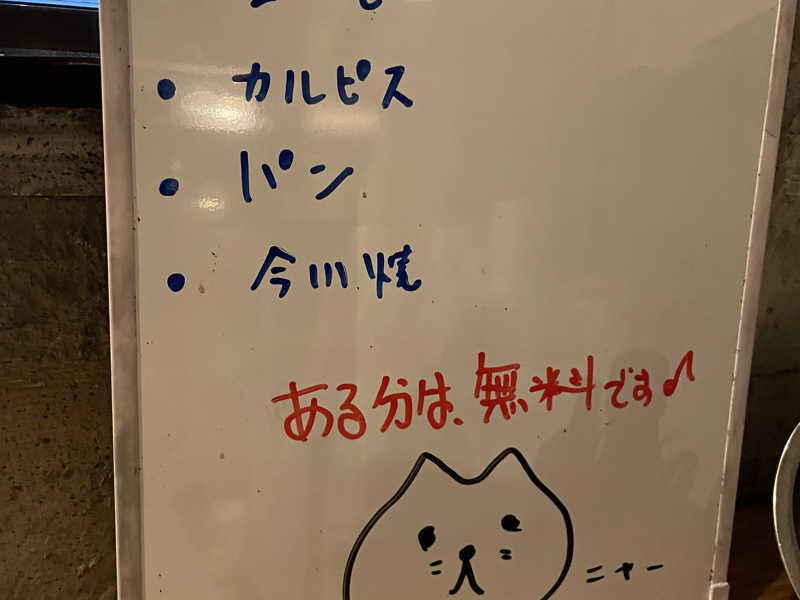 • カルピス
• パン
• 今川焼
ある分は、無料です♪
ニャー